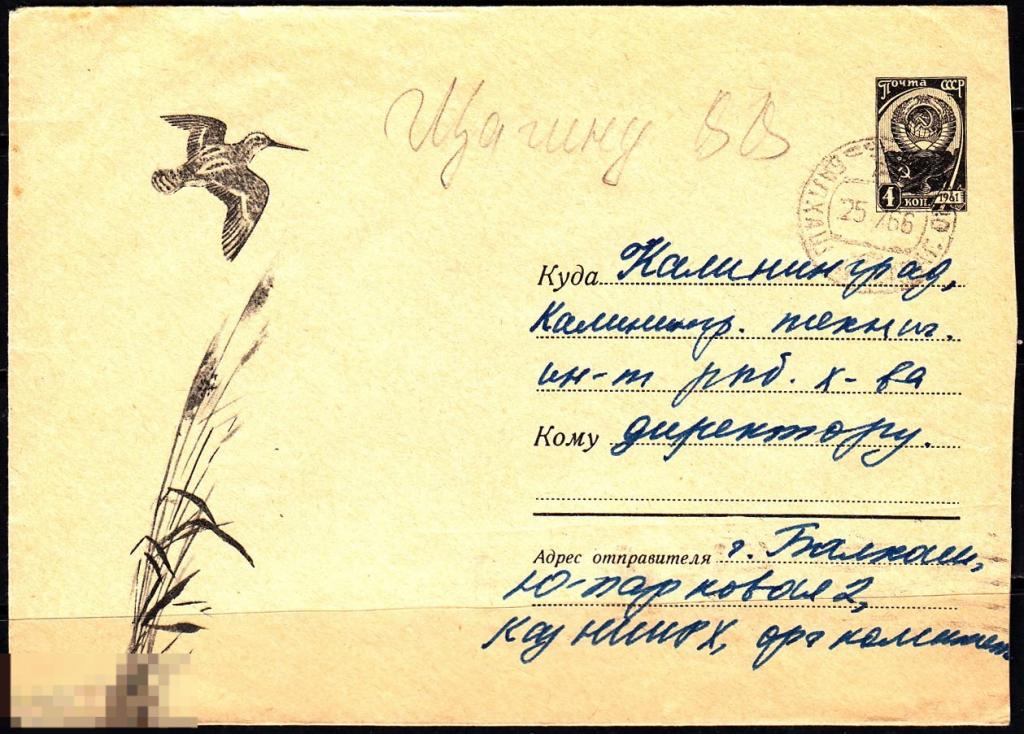 Щагину ВВ
Почта СССР
4 коп. 1961
25 66
Куда Калининград,
Калинингр. технич.
ин-т рыб. х-ва
Кому директору.
Адрес отправителя г. Балхаш,
Ю-парковая 2,
КазНИИРХ, орг комитет